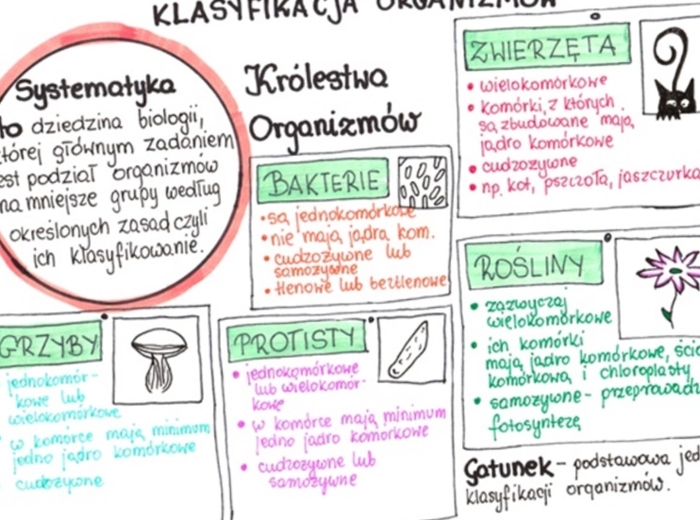 KLASYFIKACJA ORGANIZMÓW
Systematyka
to dziedzina biologii,
której głównym zadaniem
jest podział organizmów
na mniejsze grupy według
określonych zasad czyli
ich klasyfikowanie.
Królestwa
Organizmów
BAKTERIE
• są jednokomórkowe
• nie mają jądra kom.
• cudzożywne lub
samożywne
• tlenowe lub beztlenowe
ZWIERZĘTA
• wielokomórkowe
• komórki, z których
są zbudowane mają
jądro komórkowe
• cudzożywne
• np. kot, pszczoła, jaszczurka
ROŚLINY
• zazwyczaj
wielokomórkowe
• ich komórki
mają jądro komórkowe, ści
komórkową i chloroplasty
• samożywne - przeprowadz
fotosyntezę
GRZYBY
jednokomór-
kowe lub
wielokomórkowe
w komórce mają minimum
jedno jądro komórkowe
cudzożywne
PROTISTY
• jednokomórkowe
lub wielokomór-
kowe
• w komórce mają minimum
jedno jądro komórkowe
• cudzożywne lub
samożywne
Gatunek - podstawowa jed
klasyfikacji organizmów.